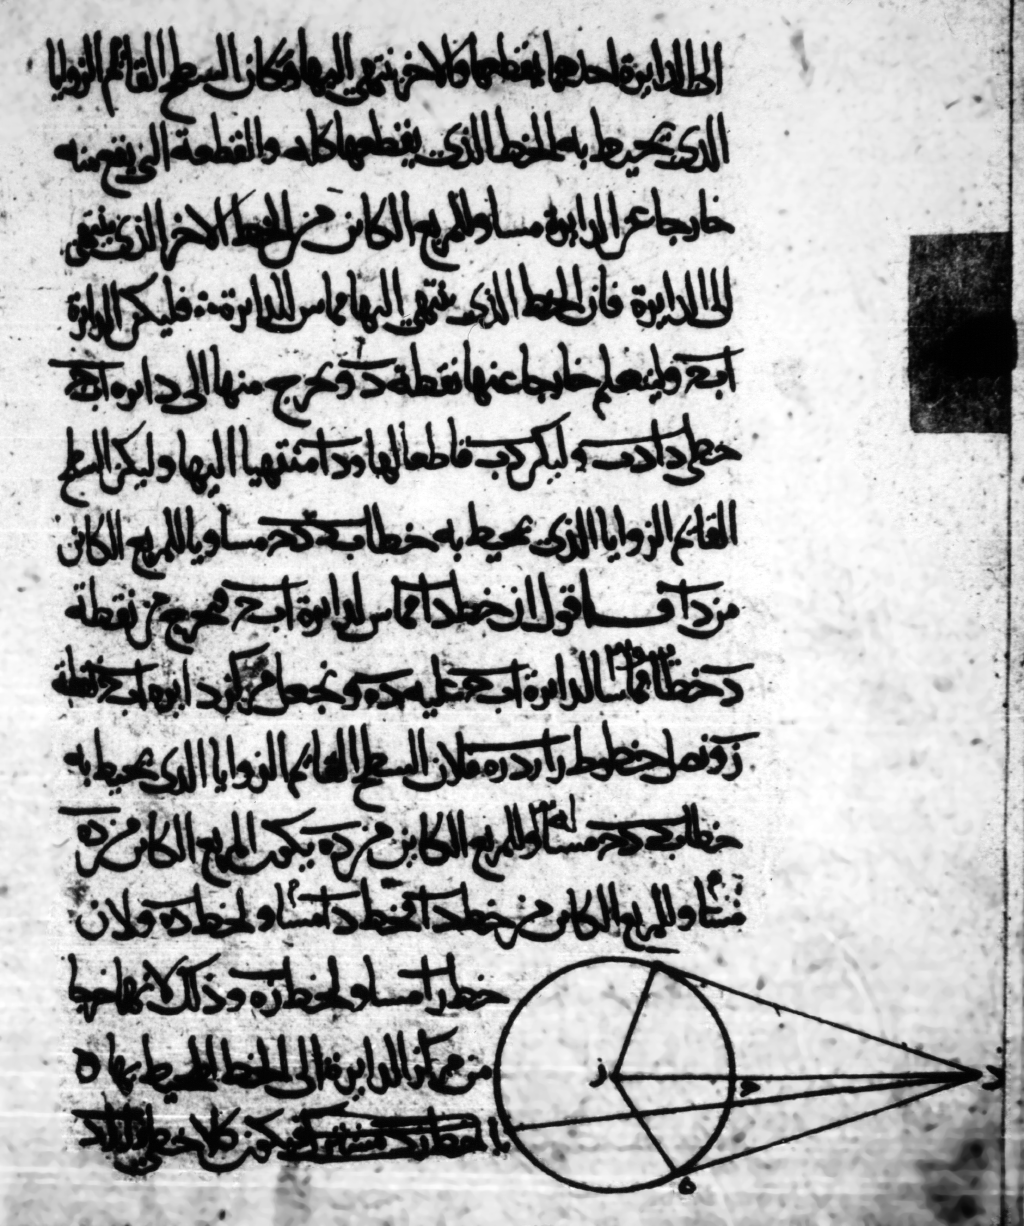 الى الدايرة احدهما يقطعها والاخر ينتهي اليها وكان السطح القائم الزوايا
الذي يحيط به الخط الذي يقطعها كله والقطعة التي يقع منه
خارجا عن الدايرة مساو للمربع الكائن من الخط الاخر الذي ينتهي
الى الدايرة فان الخط الذي ينتهي اليها مماس للدايرة فليكن الدايرة
ابج وليتعلم خارجا عنها نقطة د ونخرج منها الى دايره ابج
خطي دا دب وليكن دب قاطعا لها ودا منتهيا اليها وليكن السطح
القايم الزوايا الذي يحيط به خطا بد دج مساويا للمربع الكائن
من دا فـــاقول ان خط دا مماس لدايرة ابج نخرج من نقطة
د خطا مماسا لدايرة ابج عليه ده ونجعل مركز دايره ابج نقطة
ز ونصل خطوط زا زد زه فلان السطح القايم الزوايا الذي يحيط به
خطا بد دج مساو للمربع الكاين من ده يكون المربع الكائن من ده
مساو للمربع الكائن من خط دا فخط دا مساو لخط ده ولان
خط زا مساو لخط زه وذلك لانهما خرجا
من مركز الدايرة الى الخط المحيط بها ه
يكون كلا خطي
ز
ج
د
ه